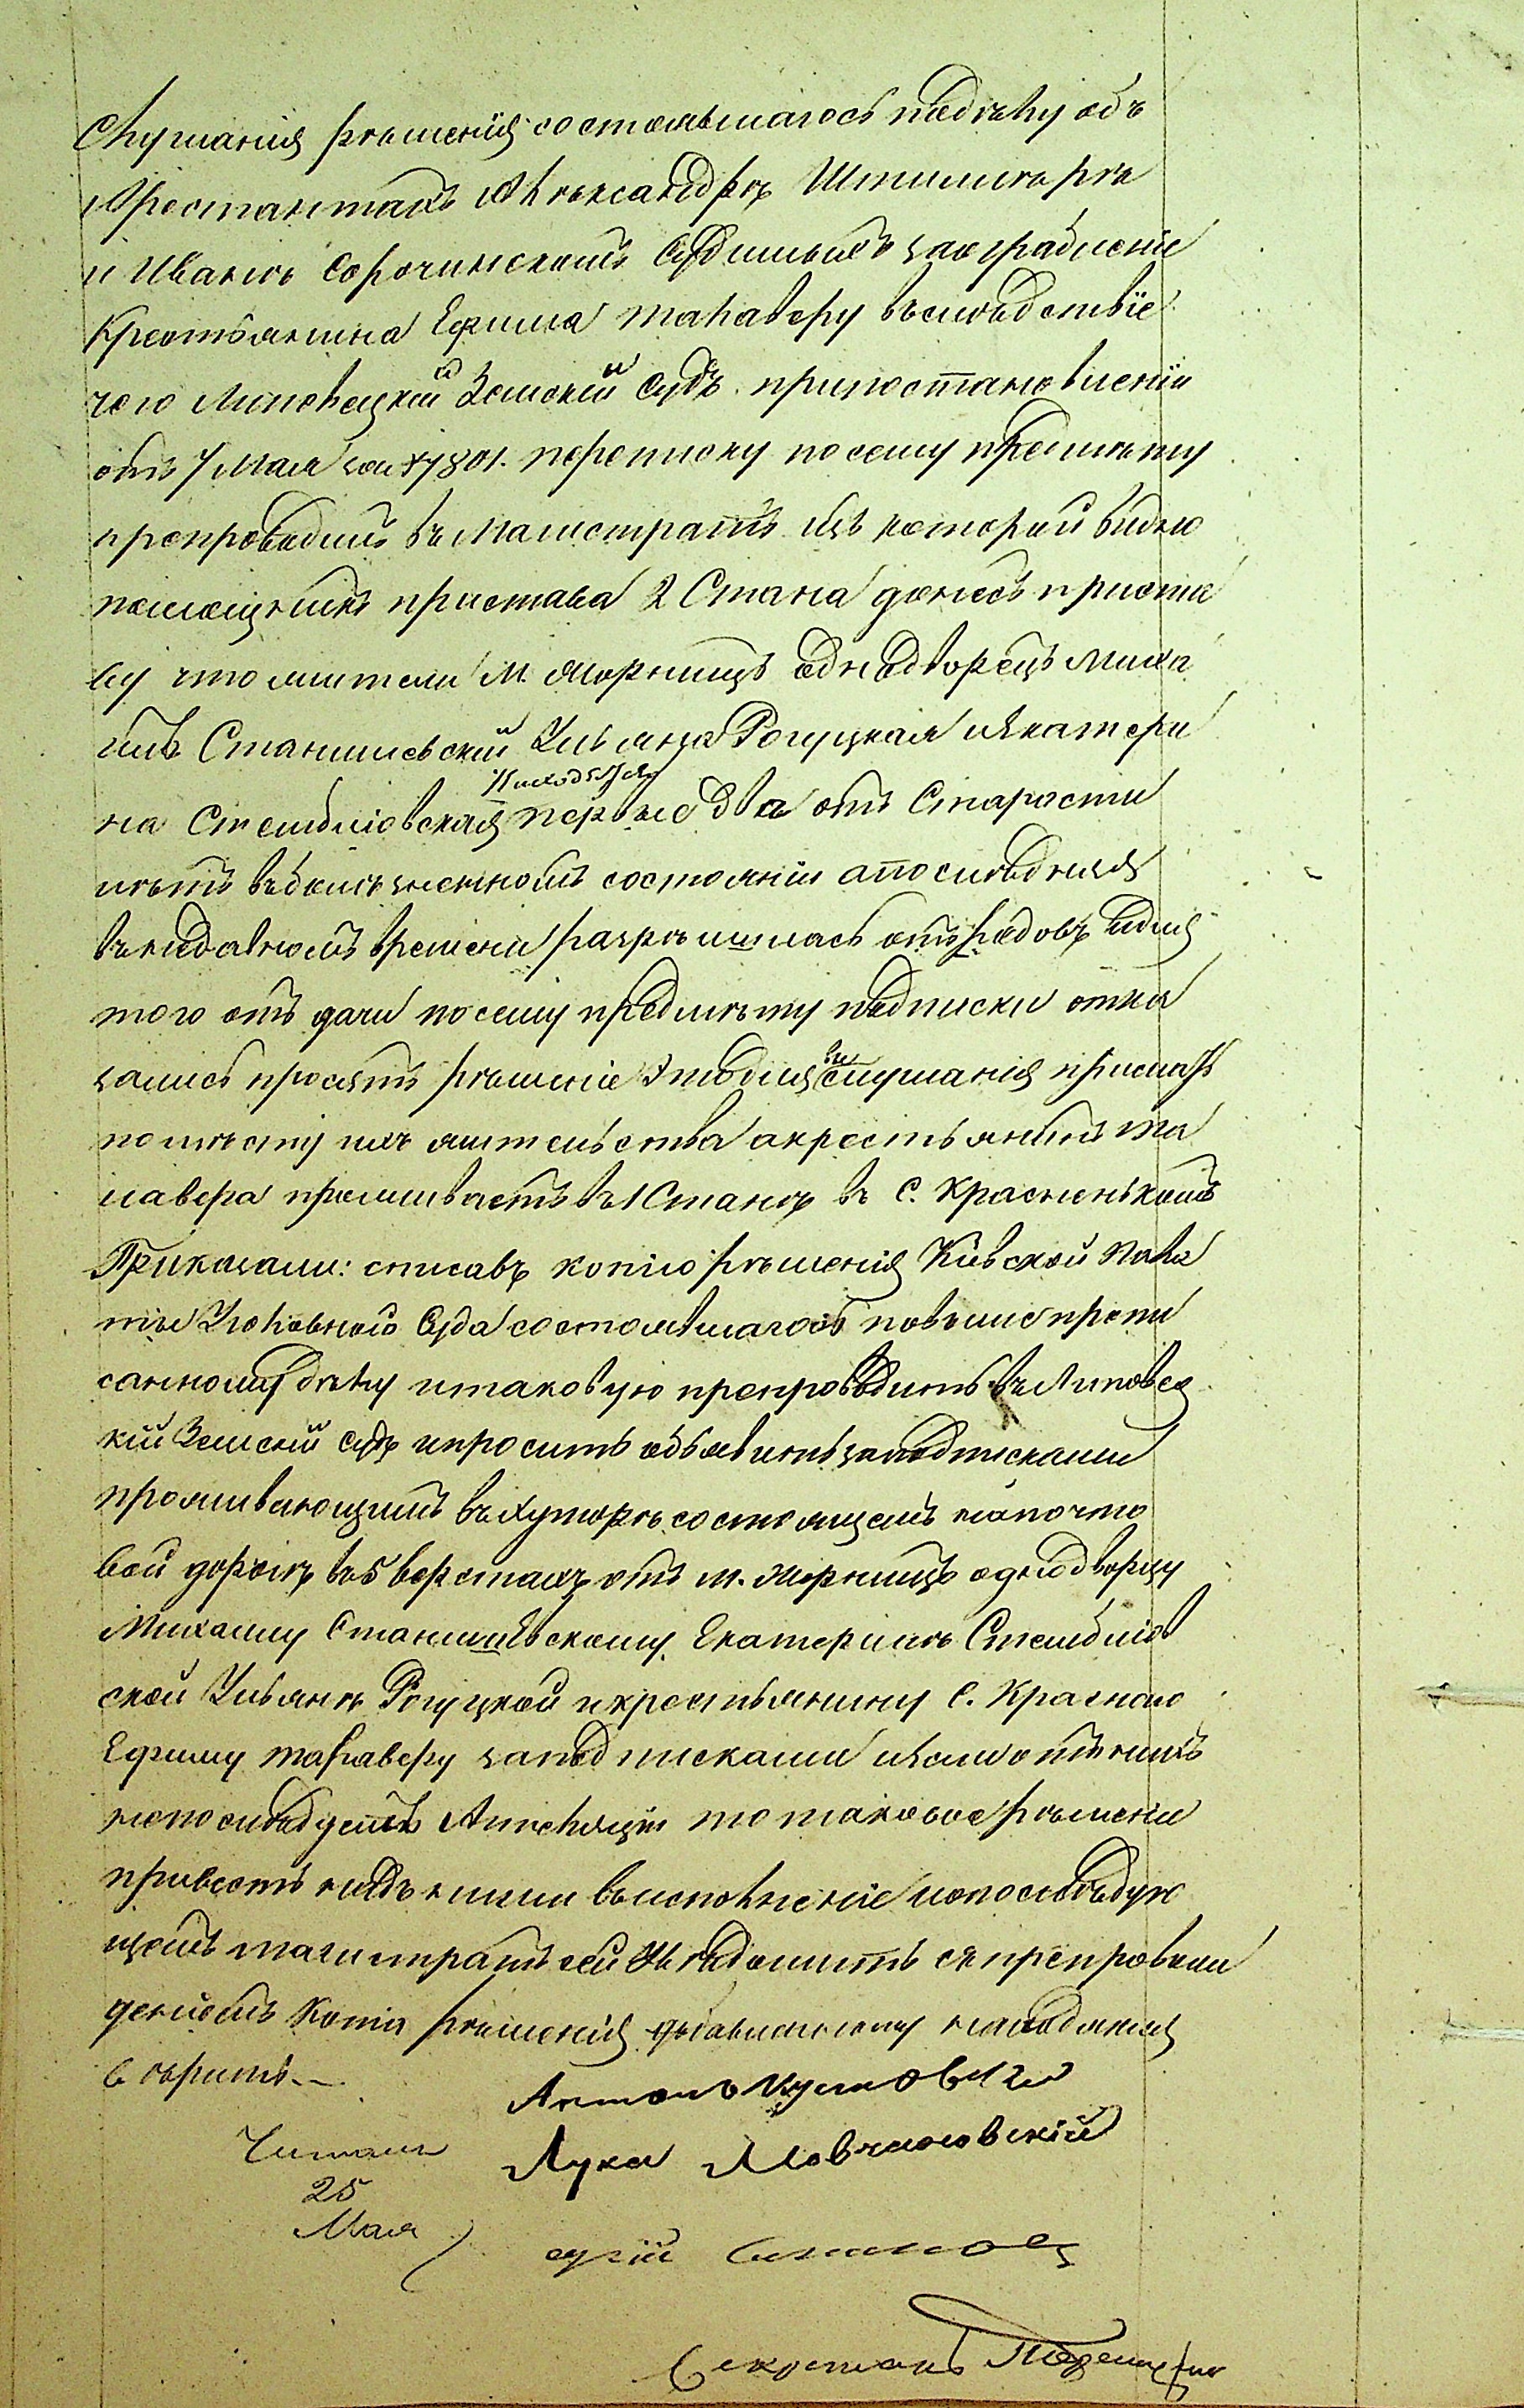 Слушанія рѣшенія состоявшагося подѣлу объ
Арестантахъ Александрѣ Штимерѣ
и Иванѣ Сорочинскомъ судимыхъ за ограбленіе
Крестьянина Ефима Талаверу вслѣдствіе
чего Липовецкій Земскій Судъ при постановленіи
отъ 7 Мая за № 7801. переписку по сему предмѣту
препроводилъ въ Магистратъ изъ которой видно
помощникъ пристава 2 Стана донесъ приста
ву что жители М. Жорнищъ однодворецъ Миха
илъ Станишевскій Ульяна Рогуцкая и Екатери
на Стемблѣовская находятся
первые два отъ Старости
лѣтъ въ болѣзненномъ состояніи а послѣдняя
въ недавномъ времени разрѣшилась отъ родовъ и для
того отъ дачи по сему предмѣту подписки отка
зались просятъ рѣшеніе это для выслушанія прислать
по мѣсту ихъ жительства а крестьянинъ Та
лавера проживаетъ въ 1 Станѣ въ с. Красненькомъ
Приказали: списавъ копію рѣшенія Кіевской Пала
ты Уголовного Суда состоявшагося по выше пропи
санному дѣлу и таковую препроводить въ Липовец
кій Земскій судъ и просить объявить за подписками
проживающимъ въ хуторѣ состоящемъ на почто
вой дорогѣ въ 5 верстахъ отъ м. Жорнищъ однодворцу
Михаилу Станишевскому, Екатеринѣ Стемблѣов
ской Ульянѣ Рогуцкой и крестьянину с. Красного
Ефиму Талаверу за подписками и если отъ нихъ
непослѣдуетъ Аппеляціи то таковое рѣшеніе
привесть надъ ними въ исполненіе и о послѣдую
щемъ магистратъ сей увѣдомить съ препровож
деніемъ Копія рѣшенія
вѣрить.
Антонъ
Лука Мовчановскій
Читалъ
25
Мая
Секретарь